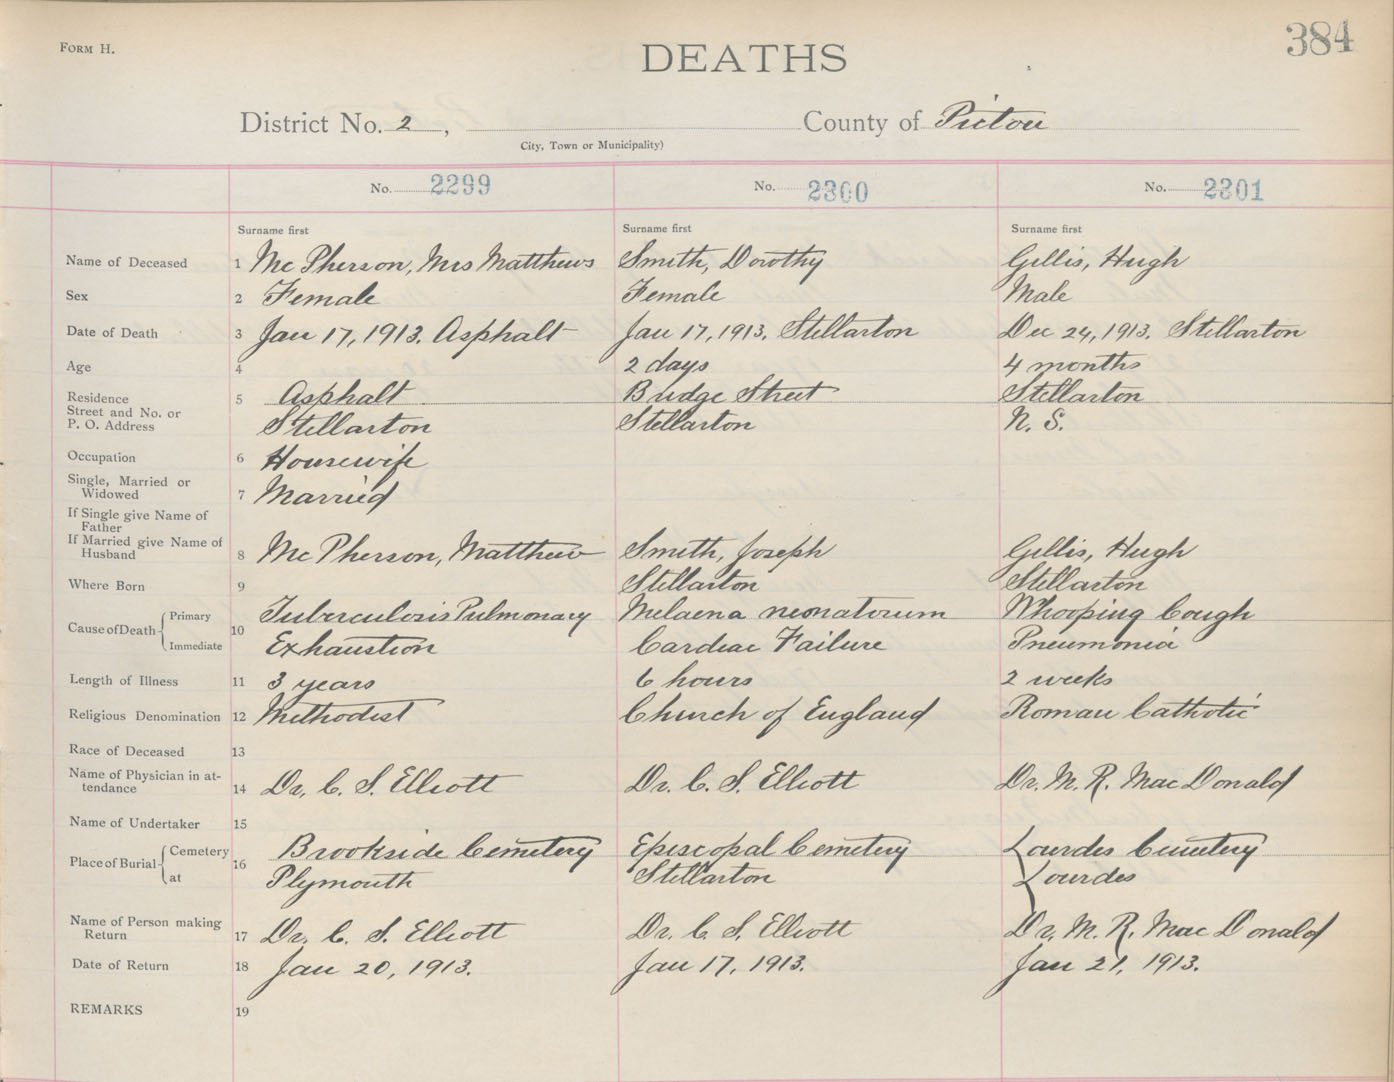 384
FORM H.
DEATHS
District No. 2, County of Pictou
City, Town or Municipality)
No. 2299 No. 2300 No. 2301
Surname first Surname first Surname first
Name of Deceased 1 Mc Pherson, Mrs Matthews Smith, Dorothy Gillis, Hugh
Sex 2 Female Female Male
Date of Death 3 Jan 17, 1913. Asphalt Jan 17, 1913. Stellarton Dec 24, 1913. Stellarton
Age 4 2 days 4 months
Residence 5 Asphalt Bridge Street Stellarton
Street and No. or
P. O. Address Stellarton Stellarton N. S.
Occupation 6 Housewife
Single, Married or
Widowed 7 Married
If Single give Name of
Father
If Married give Name of
Husband 8 Mc Pherson, Matthew Smith, Joseph Gillis, Hugh
Where Born 9 Stellarton Stellarton
Cause of Death Primary 10 Tuberculosis Pulmonary Melaena neonatorum Whooping Cough
Immediate Exhaustion Cardiac Failure Pneumonia
Length of Illness 11 3 years 6 hours 2 weeks
Religious Denomination 12 Methodist Church of England Roman Catholic
Race of Deceased 13
Name of Physician in at-
tendance 14 Dr. C. S. Elliott Dr. C. S. Elliott Dr. M. R. Mac Donald
Name of Undertaker 15
Place of Burial Cemetery 16 Brookside Cemetery Episcopal Cemetery Lourdes Cemetery
at Plymouth Stellarton Lourdes
Name of Person making
Return 17 Dr. C. S. Elliott Dr. C. S. Elliott Dr. M. R. Mac Donald
Date of Return 18 Jan 20, 1913. Jan 17, 1913. Jan 21, 1913.
REMARKS 19